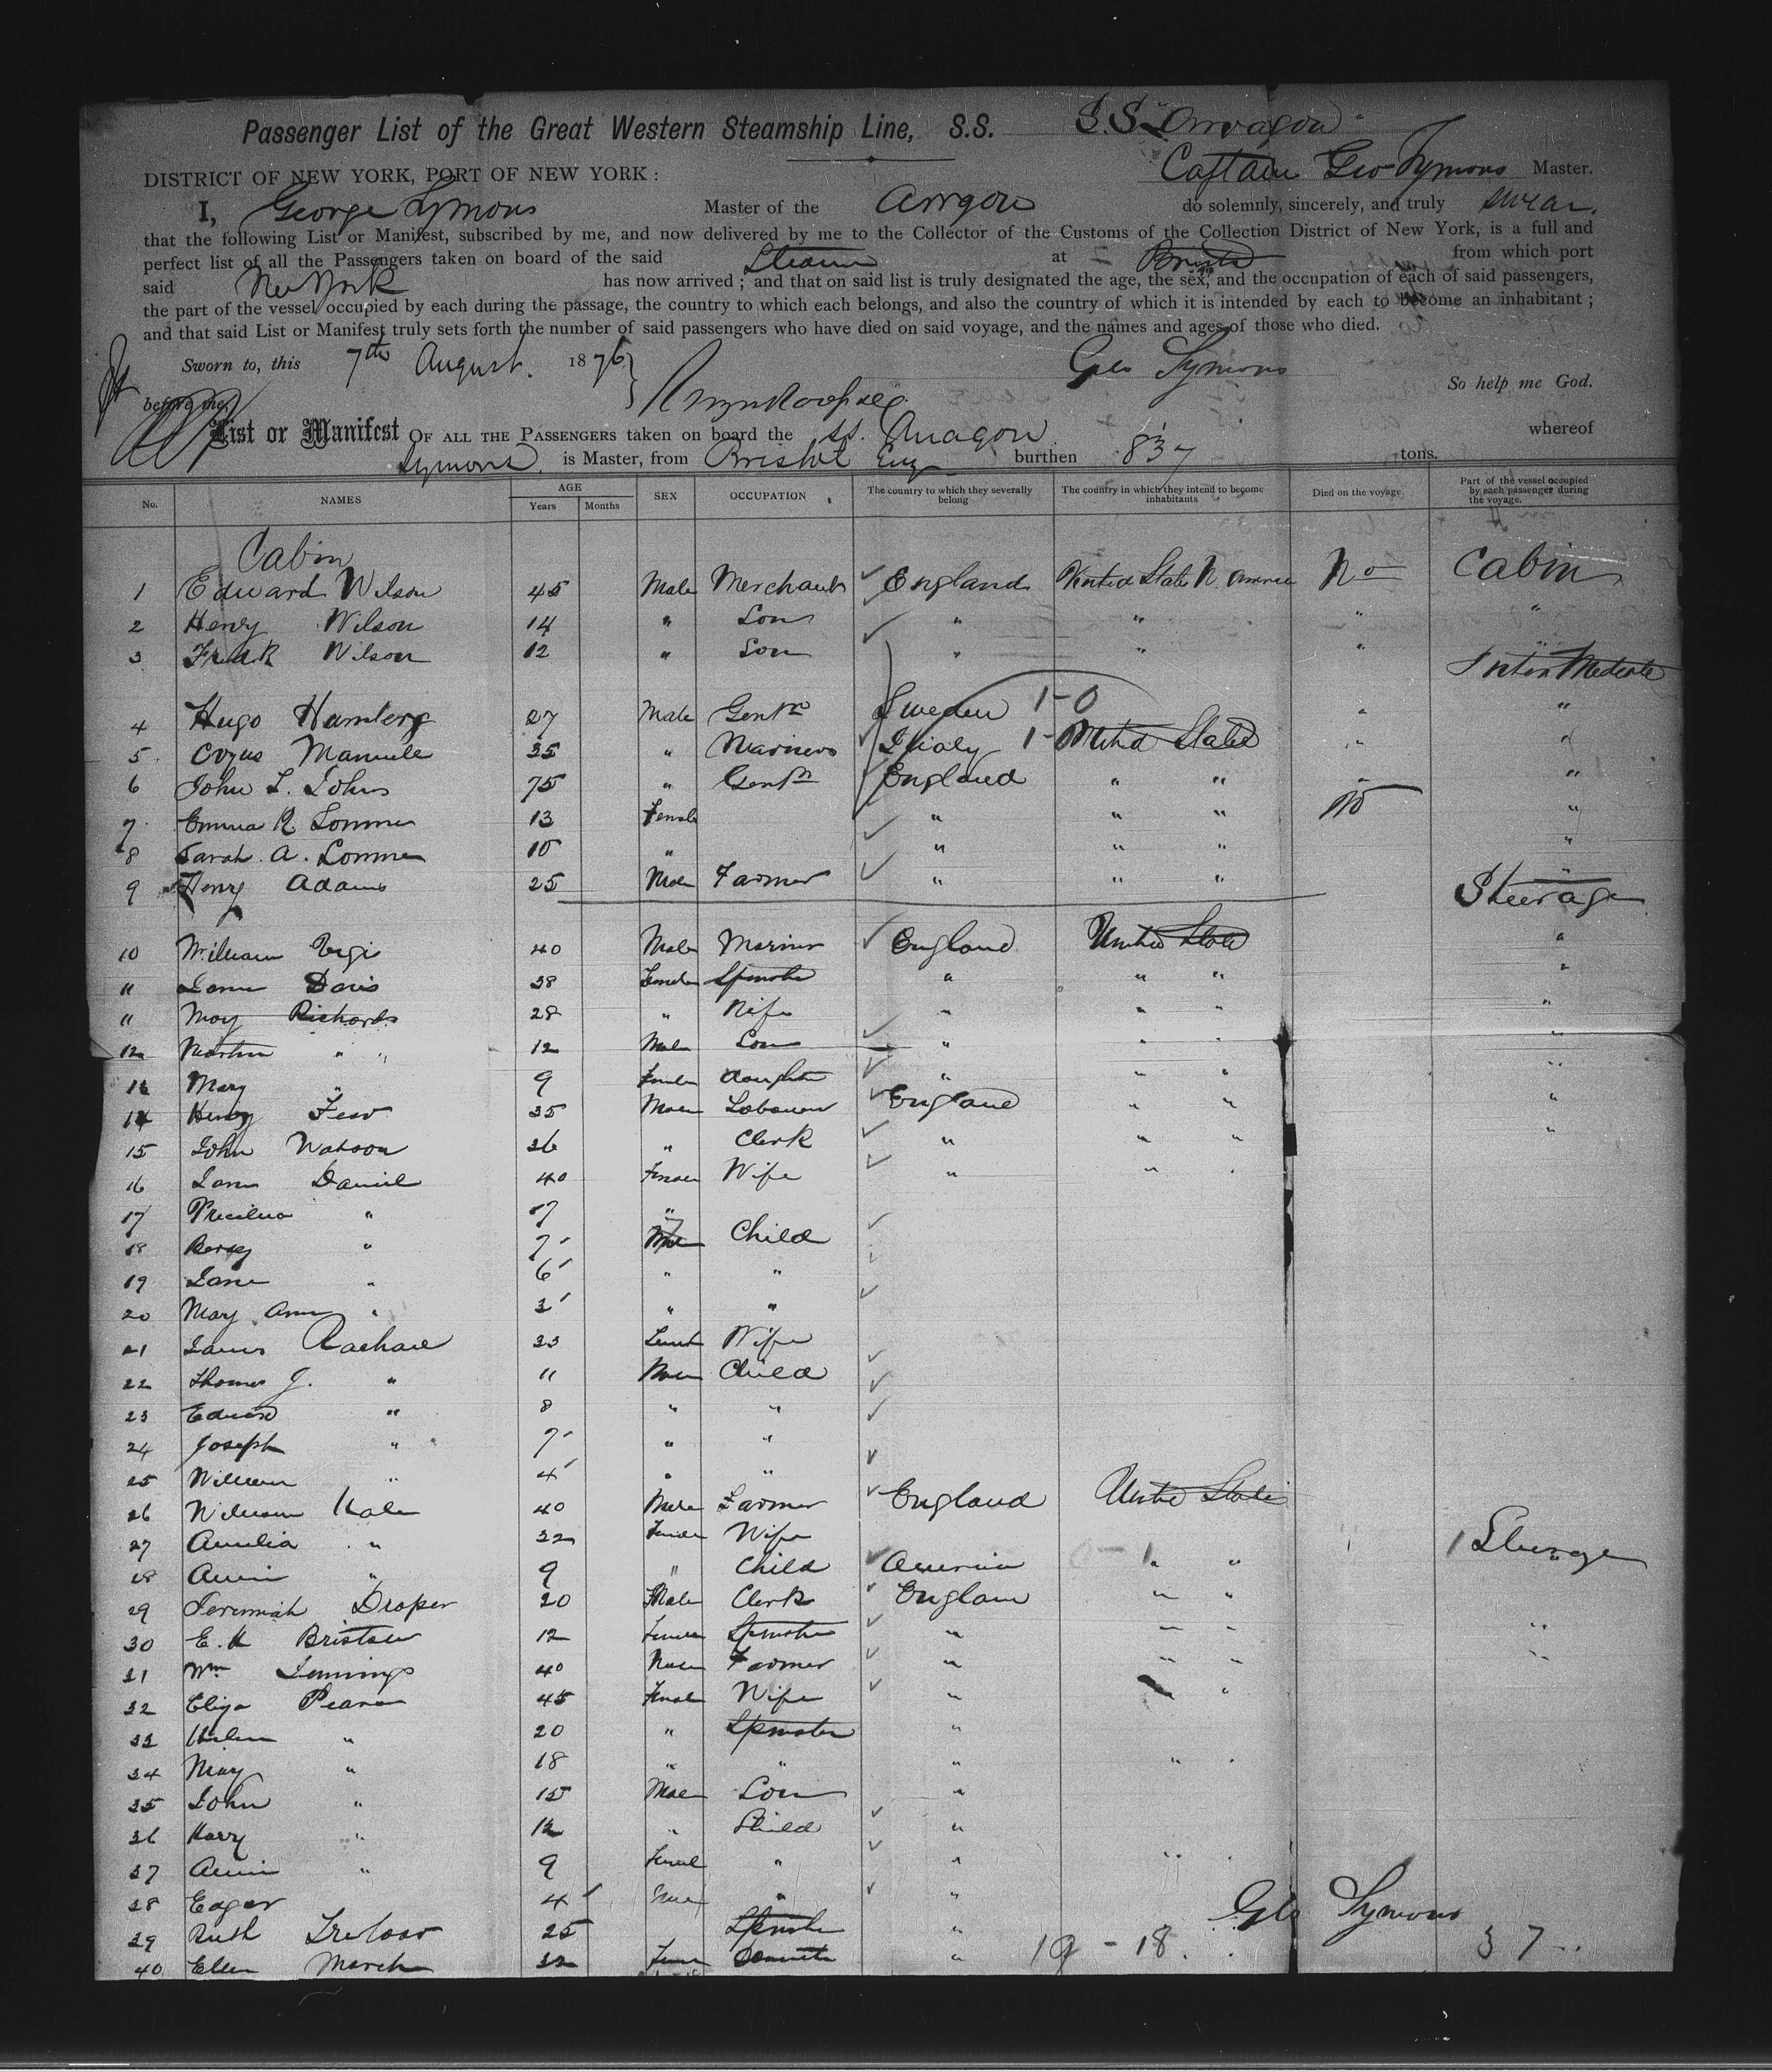 Passenger List of the Great Western Steamship Line, S.S. S.S. Arragon
DISTRICT OF NEW YORK, PORT OF NEW YORK : Captain Geo Symons Master.
I, George Symons Master of the Arragon do solemnly, sincerely, and truly swear.
that the following List or Manifest, subscribed by me, and now delivered by me to the Collector of the Customs of the Collection District of New York, is a full and
perfect list of all the Passengers taken on board of the said Steamer at Bristol from which port
said New York has now arrived ; and that on said list is truly designated the age, the sex, and the occupation of each of said passengers,
the part of the vessel occupied by each during the passage, the country to which each belongs, and also the country of which it is intended by each to become an inhabitant ;
and that said List or Manifest truly sets forth the number of said passengers who have died on said voyage, and the names and ages of those who died.
Sworn to, this 7th August. 1876 Geo Symons So help me God.
before me,
List or Manifest OF ALL THE PASSENGERS taken on board the SS. Arragon whereof
Symons is Master, from Bristol Eng burthen 837 tons.
No. NAMES AGE Years Months SEX OCCUPATION The country to which they severally belong The country in which they intend to become inhabitants Died on the voyage. Part of the vessel occupied by each passenger during the voyage.
Cabin
1 Edward Wilson 45 Male Merchant England United States N. America No Cabin
2 Henry Wilson 14 " Son " " " "
3 Fredk Wilson 12 " Son " " "
Inter Mediate
4 Hugo Hamberg 27 Male Gentn Sweden 1-0 " "
5 Manuele 35 " Mariner Italy 1- United States " "
6 John L. Johns 75 " Gentn England " " " "
7 Emma R 13 Female " " " No "
8 Sarah A. 10 " " " " "
9 Henry Adams 25 Male Farmer " " " "
Steerage
10 William 40 Male Mariner England United State "
11 Jane Davis 38 Female Spinster " " " "
11 Mary Richards 28 " Wife " " " "
12 Martin " " 12 Male Son " " " "
Mary " 9 Female daughter " " " "
14 Henry Few 35 Male Labourer England " " "
15 John Watson 26 " Clerk " " " "
16 Jane Daniel 40 Female Wife " " "
17 Precilia " 17 "
18 " 7 Child
19 Jane " 6 " "
20 Mary Ann " 3 " "
21 Rachael 33 Female Wife
22 Thomas J. " 11 Male Child
23 Edward " 8 " "
24 Joseph " 7 " "
25 William " 4 " "
26 William Hale 40 Male Farmer England United State
27 Amelia " 32 Female Wife 1 Steerage
28 Annie " 9 " Child America 0-1 " "
29 Jeremiah Draper 20 Male Clerk England " "
30 E. H Bristow 12 Female Spinster " " " "
31 Wm Jennings 40 Male Farmer " " " "
32 Eliza 45 Female Wife " "
33 Helen " 20 " Spinster "
34 May " 18 " " " " "
35 John " 15 Male Son "
36 Harry " 12 " Child "
37 Annie " 9 Female " " " "
38 Edgar 4 Male " " Geo Symons
39 Ruth Treloar 25 Spinster "
40 Ellen March 32 Female " 19 - 18. 37